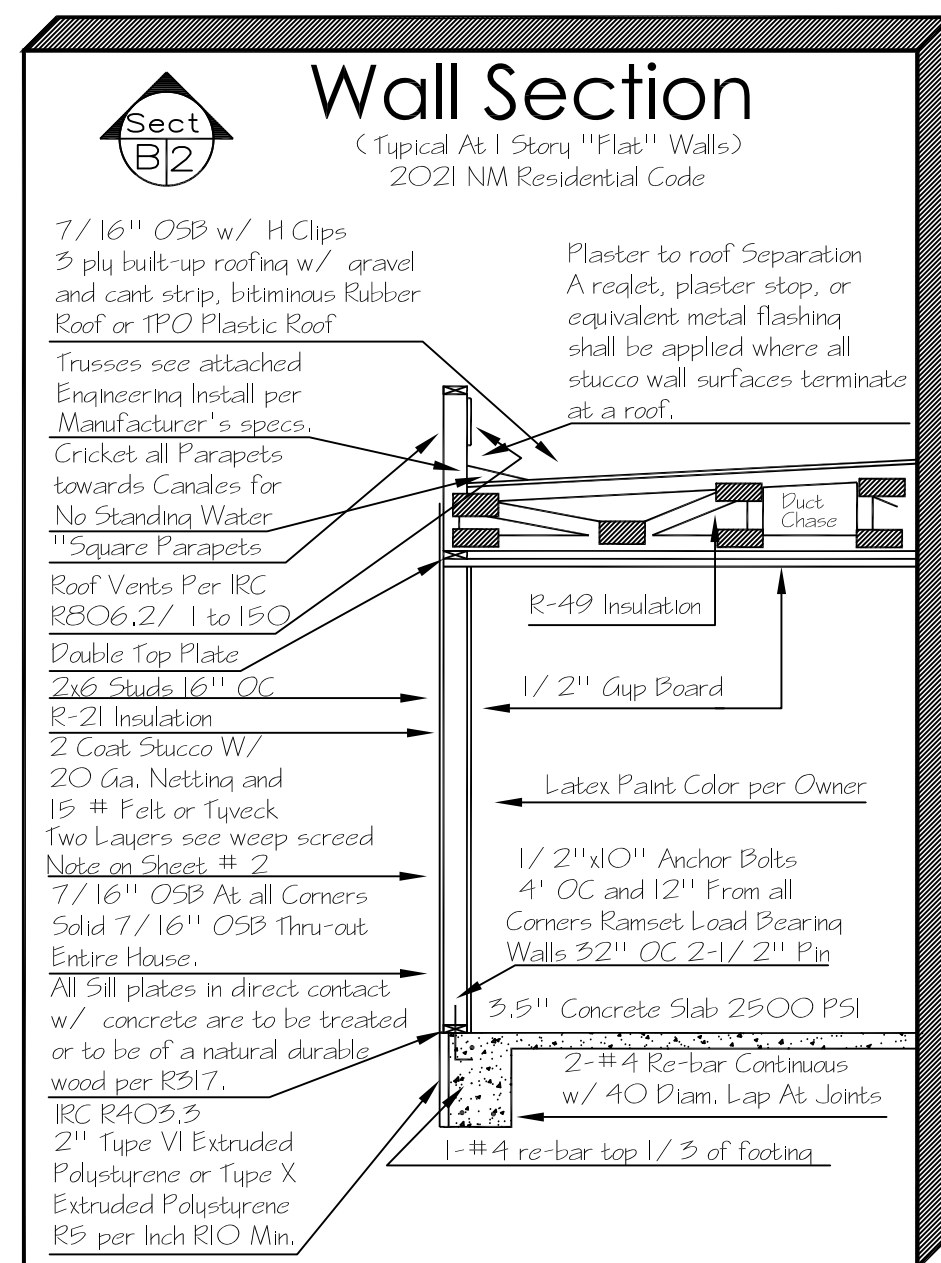 Wall Section
Sect
B 2
( Typical At 1 Story "Flat" Walls)
2021 NM Residential Code
7/16" OSB w/ H Clips
3 ply built-up roofing w/ gravel
and cant strip, bitiminous Rubber
Roof or TPO Plastic Roof
Trusses see attached
Engineering Install per
Manufacturer's specs.
Cricket all Parapets
towards Canales for
No Standing Water
"Square Parapets
Roof Vents Per IRC
R806.2/ 1 to 150
Double Top Plate
2x6 Studs 16" OC
R-21 Insulation
2 Coat Stucco W/
20 Ga. Netting and
15 # Felt or Tyveck
Two Layers see weep screed
Note on Sheet # 2
7/16" OSB At all Corners
Solid 7/16" OSB Thru-out
Entire House.
All Sill plates in direct contact
w/ concrete are to be treated
or to be of a natural durable
wood per R317.
IRC R403.3
2" Type VI Extruded
Polystyrene or Type X
Extruded Polystyrene
R5 per Inch R10 Min.
Plaster to roof Separation
A reglet, plaster stop, or
equivalent metal flashing
shall be applied where all
stucco wall surfaces terminate
at a roof.
Duct
Chase
R-49 Insulation
1/2" Gyp Board
Latex Paint Color per Owner
1/2"x10" Anchor Bolts
4' OC and 12" From all
Corners Ramset Load Bearing
Walls 32" OC 2-1/2" Pin
3.5" Concrete Slab 2500 PSI
2-#4 Re-bar Continuous
w/ 40 Diam. Lap At Joints
1-#4 re-bar top 1/3 of footing